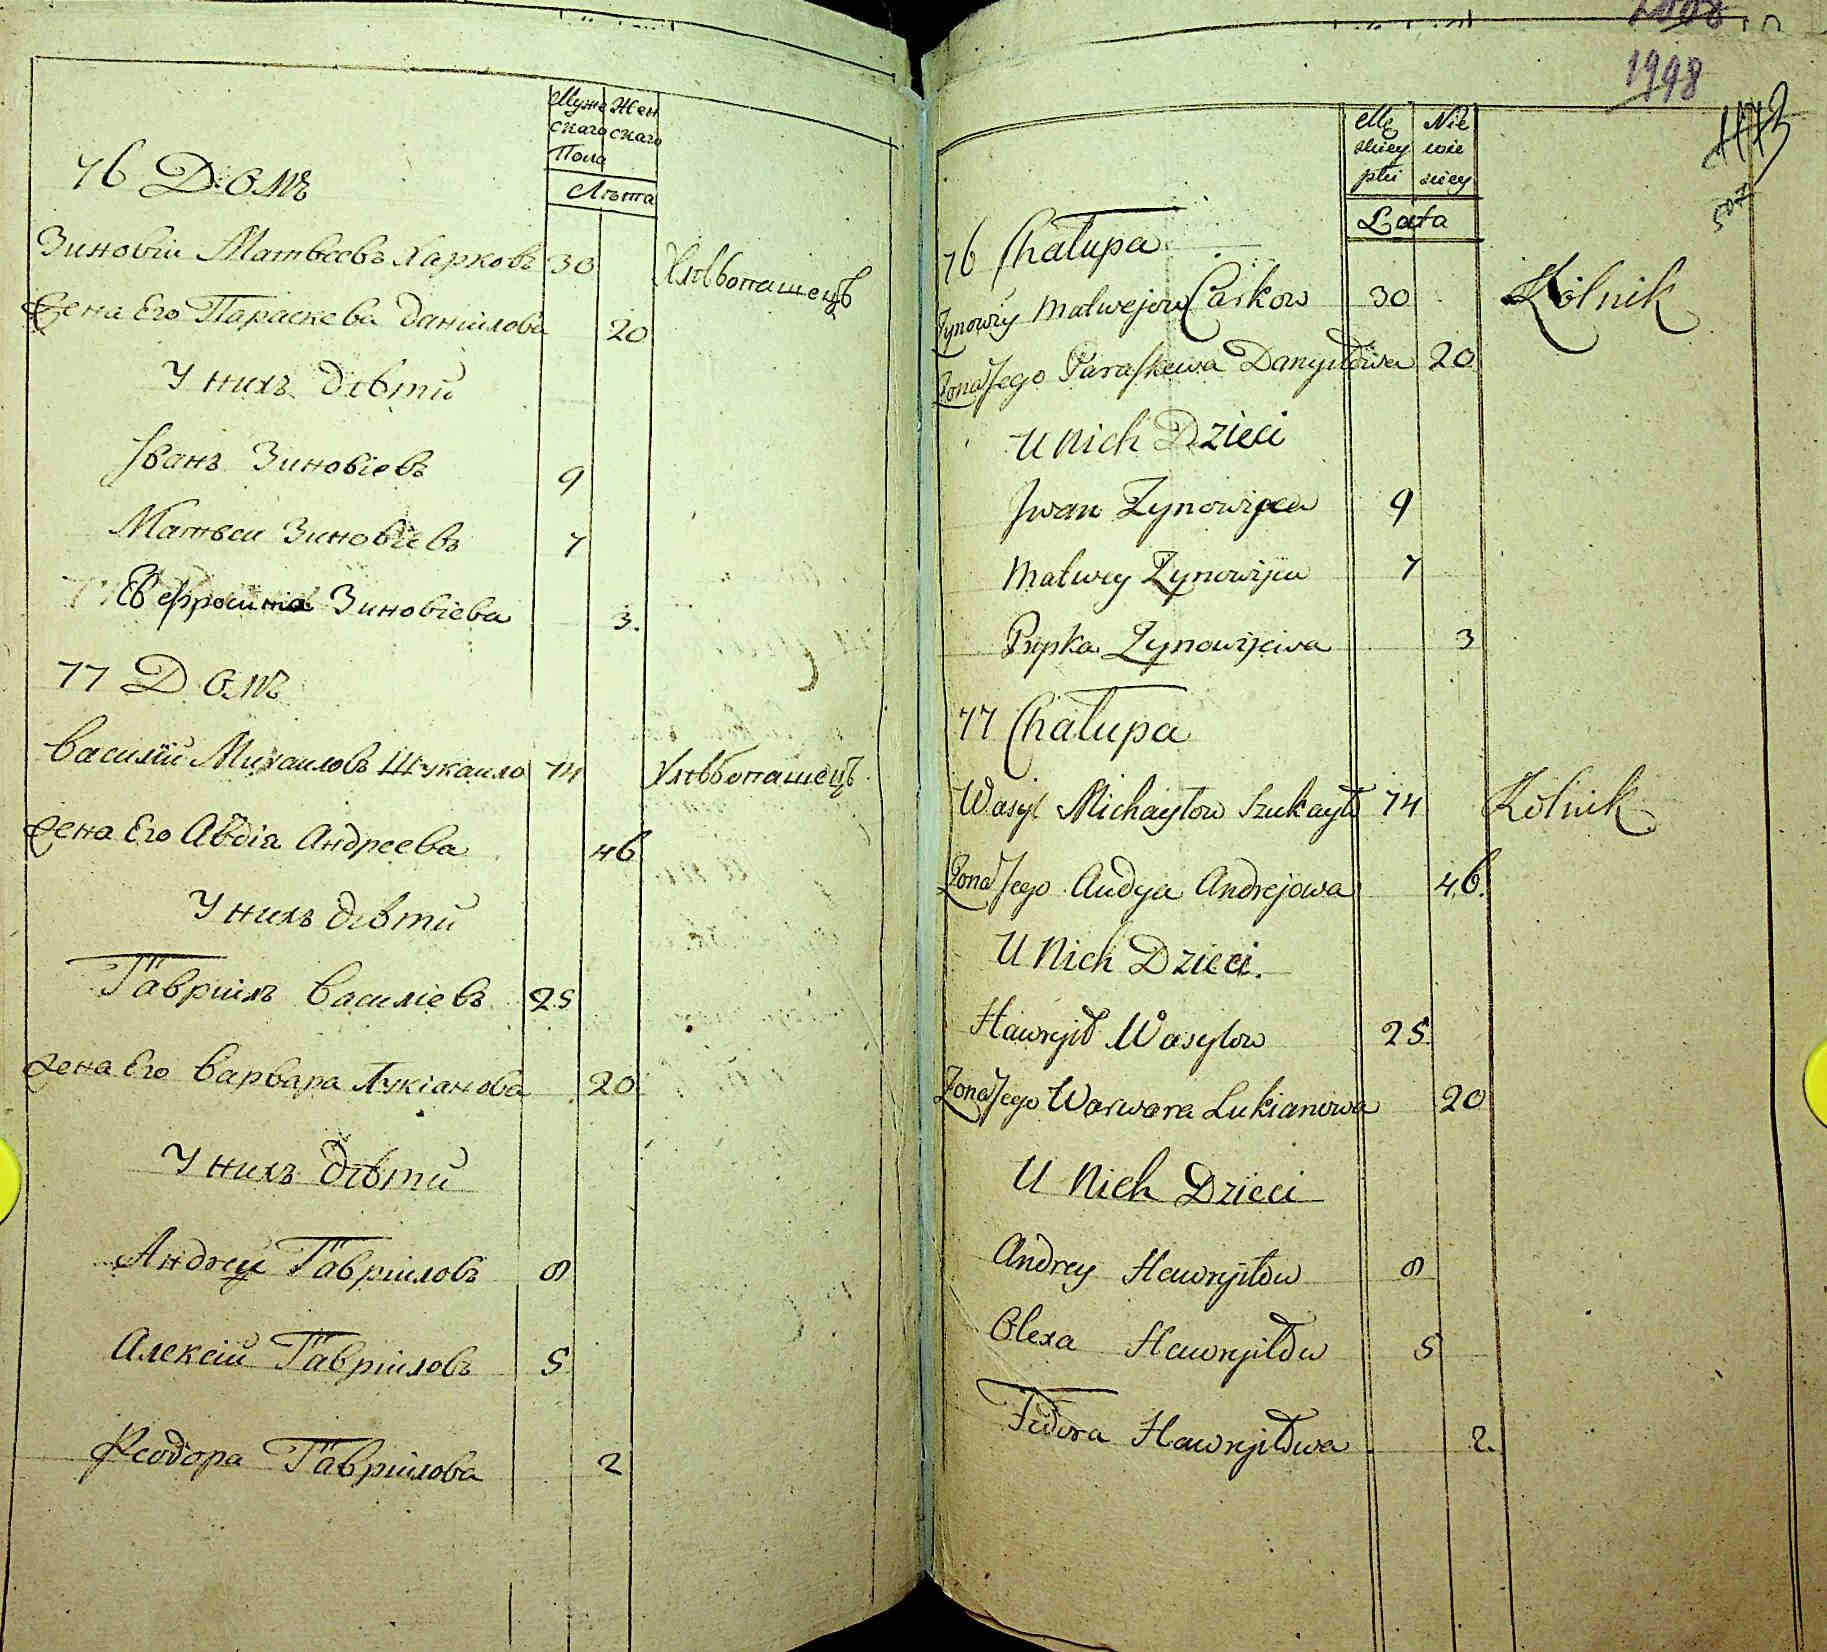 Муже Жен
скаго скаго
Пола
Лѣта
76 Домъ
Зиновіи Матвѣевъ Харковъ 30 Хлѣбопашецъ
Жена Его Параскева Даніилова 20
У нихъ дѣти
Іванъ Зиновіевъ 9
Матвеи Зиновіевъ 7
Ефросина Зиновіева 3.
77 Домъ
Василій Михаиловъ Шукаило 74 Хлѣбопашецъ
Жена Его Авдія Андреева 46
У нихъ дѣти
Гавріилъ Василіевъ 25
Жена Его Варвара Лукіанова 20
У нихъ дѣти
Андрей Гавріиловъ 8
Алексій Гавріиловъ 5
Феодора Гавріилова 2
1998
Mę Nie
skiey wie
płci sciey
Lata
76 Chałupa
Zynowiy Matwejow Carkow 30 Rolnik
Zona Jego Paraskewa Danyiłowa 20
U Nich Dzieci
Jwan Zynowijew 9
Matwey Zynowijew 7
Prypka Zynowijewa 3
77 Chałupa
Wasyl Michayłow Szukayło 74 Rolnik
Zona Jego Audya Andrejowa 46.
U Nich Dzieci.
Hawryił Wasylow 25.
Zona Jego Warwara Lukianowa 20
U Nich Dzieci
Andrey Hawryiłow 8
Olexa Hawryiłow 5
Fedora Hawryiłowa 2.